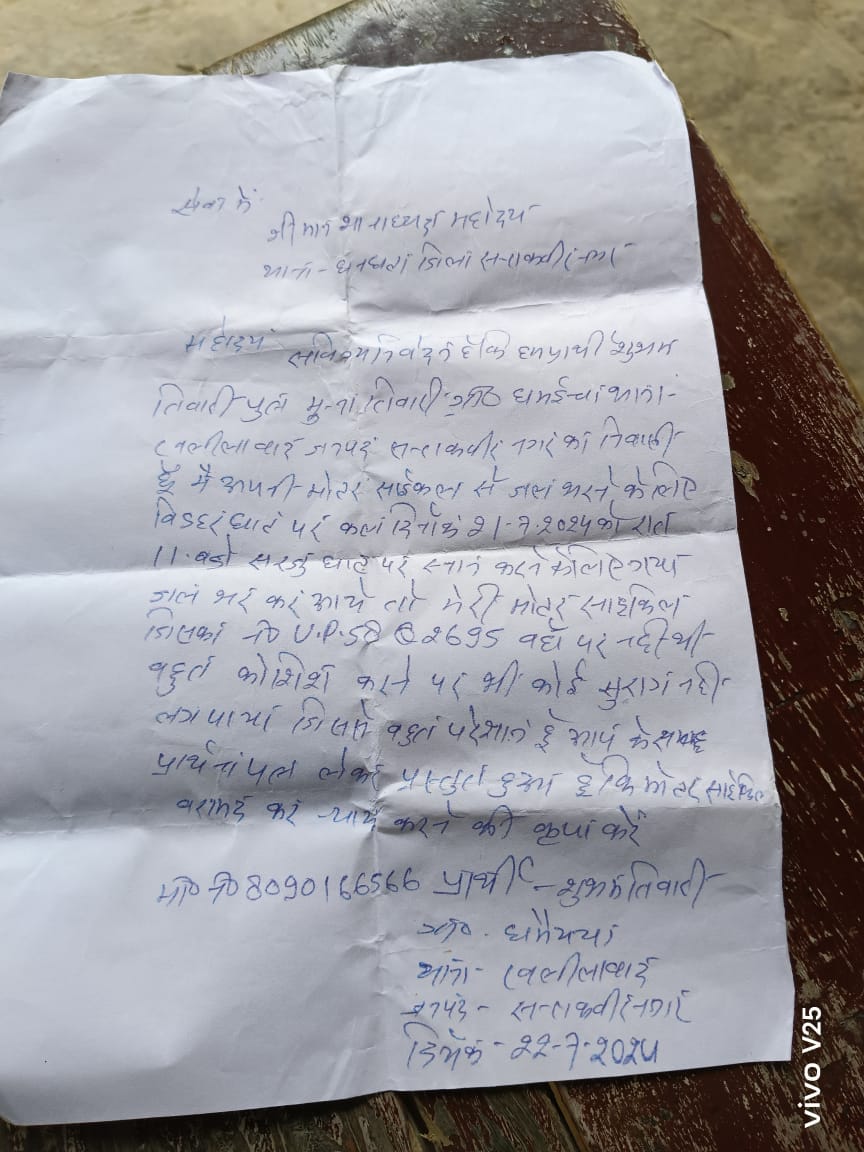 सेवा में
श्रीमान थानाध्यक्ष महोदय
थाना - धनघटा जिला सन्तकबीर नगर
महोदय सविनय निवेदन है कि हम प्रार्थी शुभम
तिवारी पुत्र मुन्ना तिवारी ग्राम थाना-
खलीलाबाद जनपद सन्तकबीर नगर का निवासी
हूँ मै अपनी मोटर साईकल से जल भरने के लिए
विडहर घाट पर कल दिनाँक 21-7-2024 को रात
11 बजे सरजु घाट पर स्नान करने के लिए गया
जल भर कर आये तो मेरी मोटर साइकिल
जिसका नं० U.P.58 2695 वहाँ पर नही थी
बहुत कोशिश करने पर भी कोई सुराग नही
लग पाया जिससे बहुत परेशान हूँ आप के समक्ष
प्रार्थना पत्र लेकर प्रस्तुत हुआ हूँ कि मोटर साईकिल
बरामद कर न्याय करने की कृपा करें
मो० नं० 8090166566 प्रार्थी - शुभम तिवारी
ग्राम -
थाना - खलीलाबाद
जनपद - सन्तकबीर नगर
दिनाँक - 22-7-2024
vivo V25